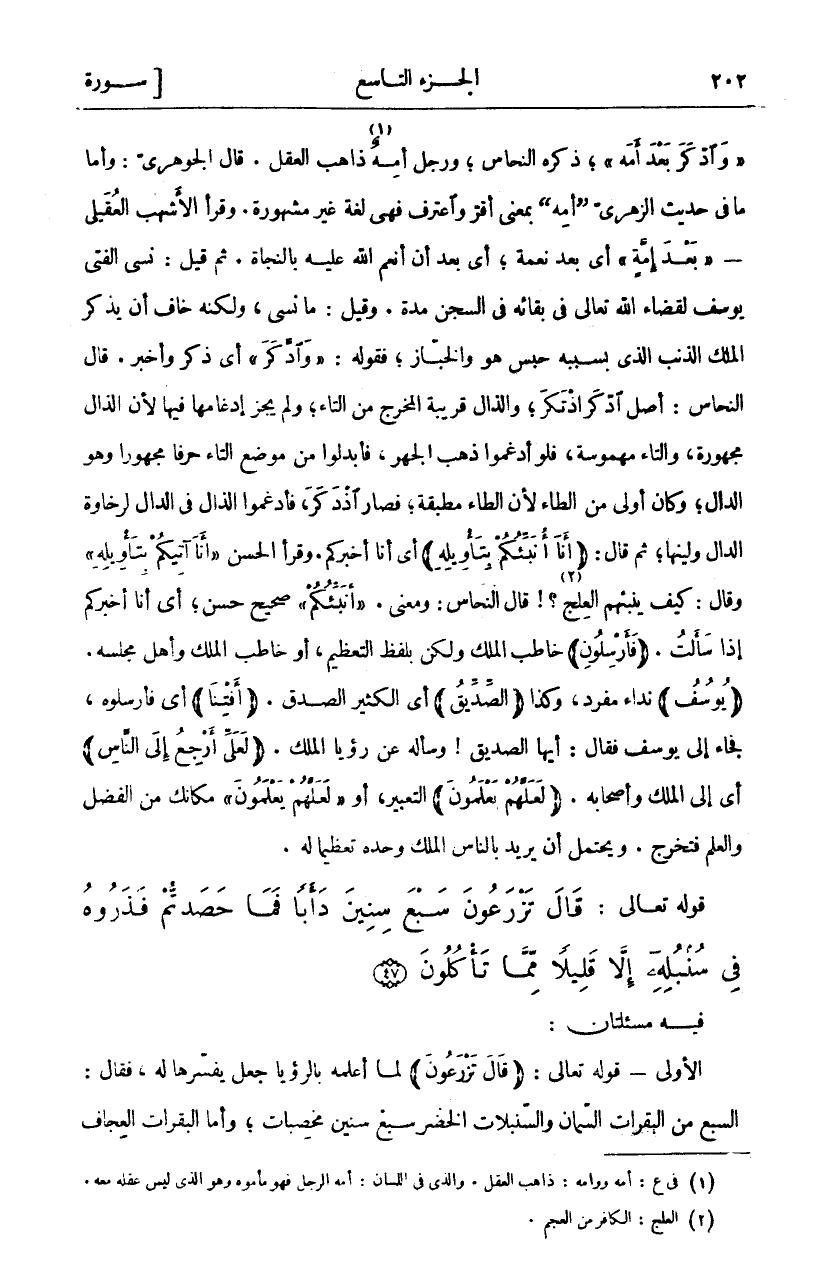 ٢٠٢ الجزء التاسع [ سورة
« وَٱدَّكَرَ بَعْدَ أَمَه » ؛ ذكره النحاس ؛ ورجل أَمِهٌ (١) ذاهب العقل . قال الجوهرى : وأما
ما فى حديث الزهرى “أمِه” بمعنى أقرّ وٱعترف فهى لغة غير مشهورة . وقرأ الأشهب العُقيلى
— « بَعْدَ إِمَّةٍ » أى بعد نعمة ؛ أى بعد أن أنعم الله عليه بالنجاة . ثم قيل : نسى الفتى
يوسف لقضاء الله تعالى فى بقائه فى السجن مدة . وقيل : ما نسى ، ولكنه خاف أن يذكر
الملك الذنب الذى بسببه حبس هو والخبّاز ؛ فقوله : « وَٱدَّكَرَ » أى ذكر وأخبر . قال
النحاس : أصل ٱدّكر اذْتَكَرَ ؛ والذال قريبة المخرج من التاء؛ ولم يجز إدغامها فيها لأن الذال
مجهورة، والتاء مهموسة، فلو أدغموا ذهب الجهر ، فأبدلوا من موضع التاء حرفا مجهورا وهو
الدال؛ وكان أولى من الطاء لأن الطاء مطبقة؛ فصار ٱذْدَكَرَ، فأدغموا الذال فى الدال لرخاوة
الدال ولينها؛ ثم قال : ﴿ أَنَا أُنَبِّئُكُمْ بِتَأْوِيلِهِ ﴾ أى أنا أخبركم. وقرأ الحسن « أَنَا آتِيكُمْ بِتَأْوِيلِهِ »
وقال : كيف ينبئهم العِلج (٢) ؟ ! قال النحاس : ومعنى . « أُنَبِّئُكُمْ » صحيح حسن؛ أى أنا أخبركم
إذا سَأَلْتُ . ﴿ فَأَرْسِلُونِ ﴾ خاطب الملك ولكن بلفظ التعظيم ، أو خاطب الملك وأهل مجلسه .
﴿ يُوسُفُ ﴾ نداء مفرد ، وكذا ﴿ الصِّدِّيقُ ﴾ أى الكثير الصدق . ﴿ أَفْتِنَا ﴾ أى فأرسلوه ،
فجاء إلى يوسف فقال : أيها الصديق ! وسأله عن رؤيا الملك . ﴿ لَعَلِّى أَرْجِعُ إِلَى النَّاسِ ﴾
أى إلى الملك وأصحابه . ﴿ لَعَلَّهُمْ يَعْلَمُونَ ﴾ التعبير ، أو « لَعَلَّهُمْ يَعْلَمُونَ » مكانك من الفضل
والعلم فتخرج . ويحتمل أن يريد بالناس الملك وحده تعظيما له .
قوله تعالى : قَالَ تَزْرَعُونَ سَبْعَ سِنِينَ دَأَبًا فَمَا حَصَدتُّمْ فَذَرُوهُ
فِى سُنۢبُلِهِۦٓ إِلَّا قَلِيلًا مِّمَّا تَأْكُلُونَ ﴿٤٧﴾
فيه مسئلتان :
الأولى — قوله تعالى : ﴿ قَالَ تَزْرَعُونَ ﴾ لما أعلمه بالرؤيا جعل يفسّرها له ، فقال :
السبع من البقرات السِّمان والسّنبلات الخضر سبع سنين مخصبات ؛ وأما البقرات العجاف
(١) فى ع : أمه وروامه : ذاهب العقل . والذى فى اللسان : أمه الرجل فهو مأموه وهو الذى ليس عقله معه .
(٢) العلج : الكافر من العجم .